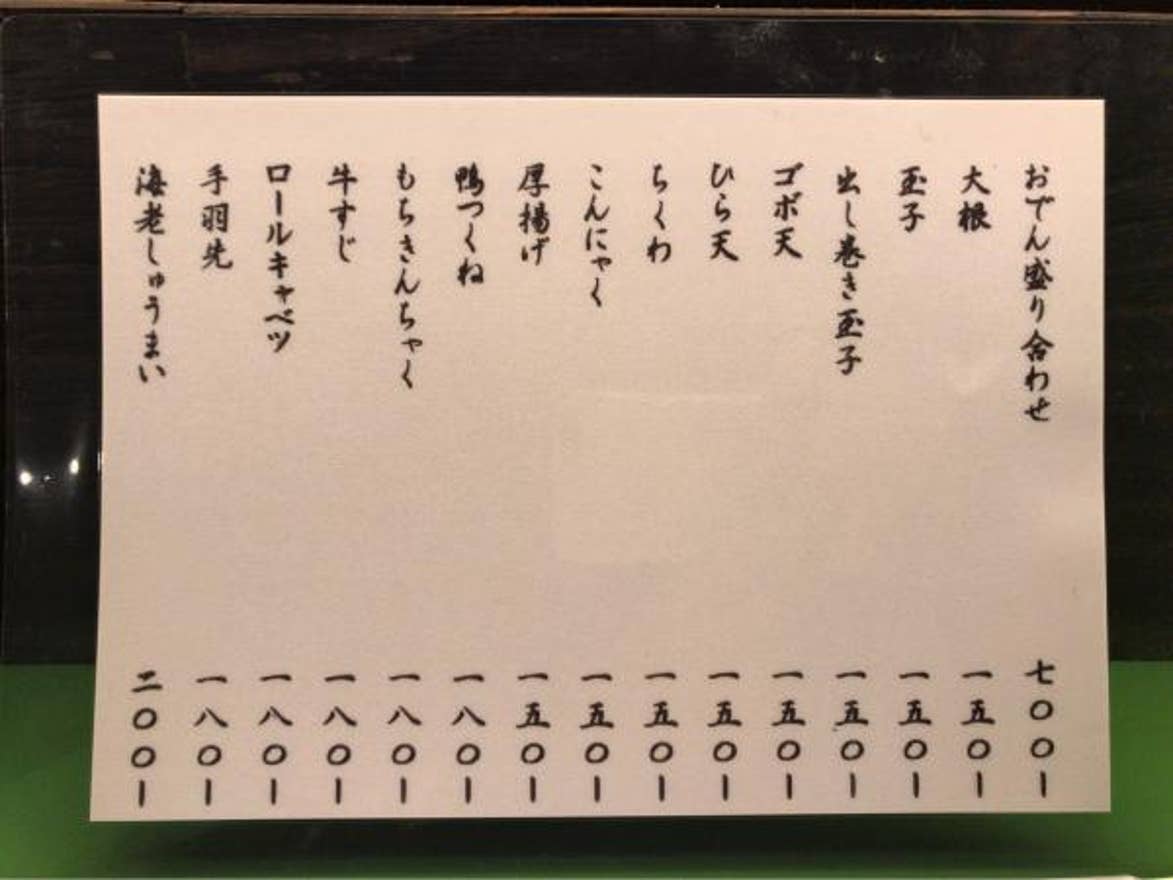 おでん盛り合わせ 七〇〇ー
大根 一五〇ー
玉子 一五〇ー
出し巻き玉子 一五〇ー
ゴボ天 一五〇ー
ひら天 一五〇ー
ちくわ 一五〇ー
こんにゃく 一五〇ー
厚揚げ 一五〇ー
鴨つくね 一八〇ー
もちきんちゃく 一八〇ー
牛すじ 一八〇ー
ロールキャベツ 一八〇ー
手羽先 一八〇ー
海老しゅうまい 二〇〇ー